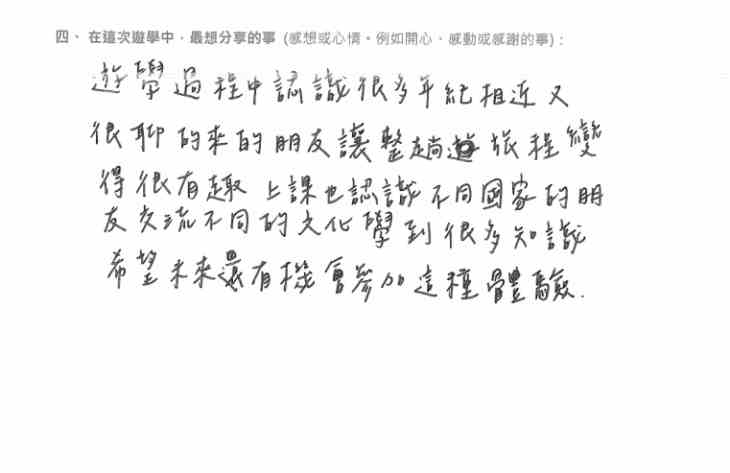 四、在這次遊學中，最想分享的事 (感想或心情。例如開心、感動或感謝的事)：
遊學過程中認識很多年紀相近又
很聊的來的朋友讓整趟旅程變
得很有趣 上課也認識不同國家的朋
友交流不同的文化學到很多知識
希望未來還有機會參加這種體驗.